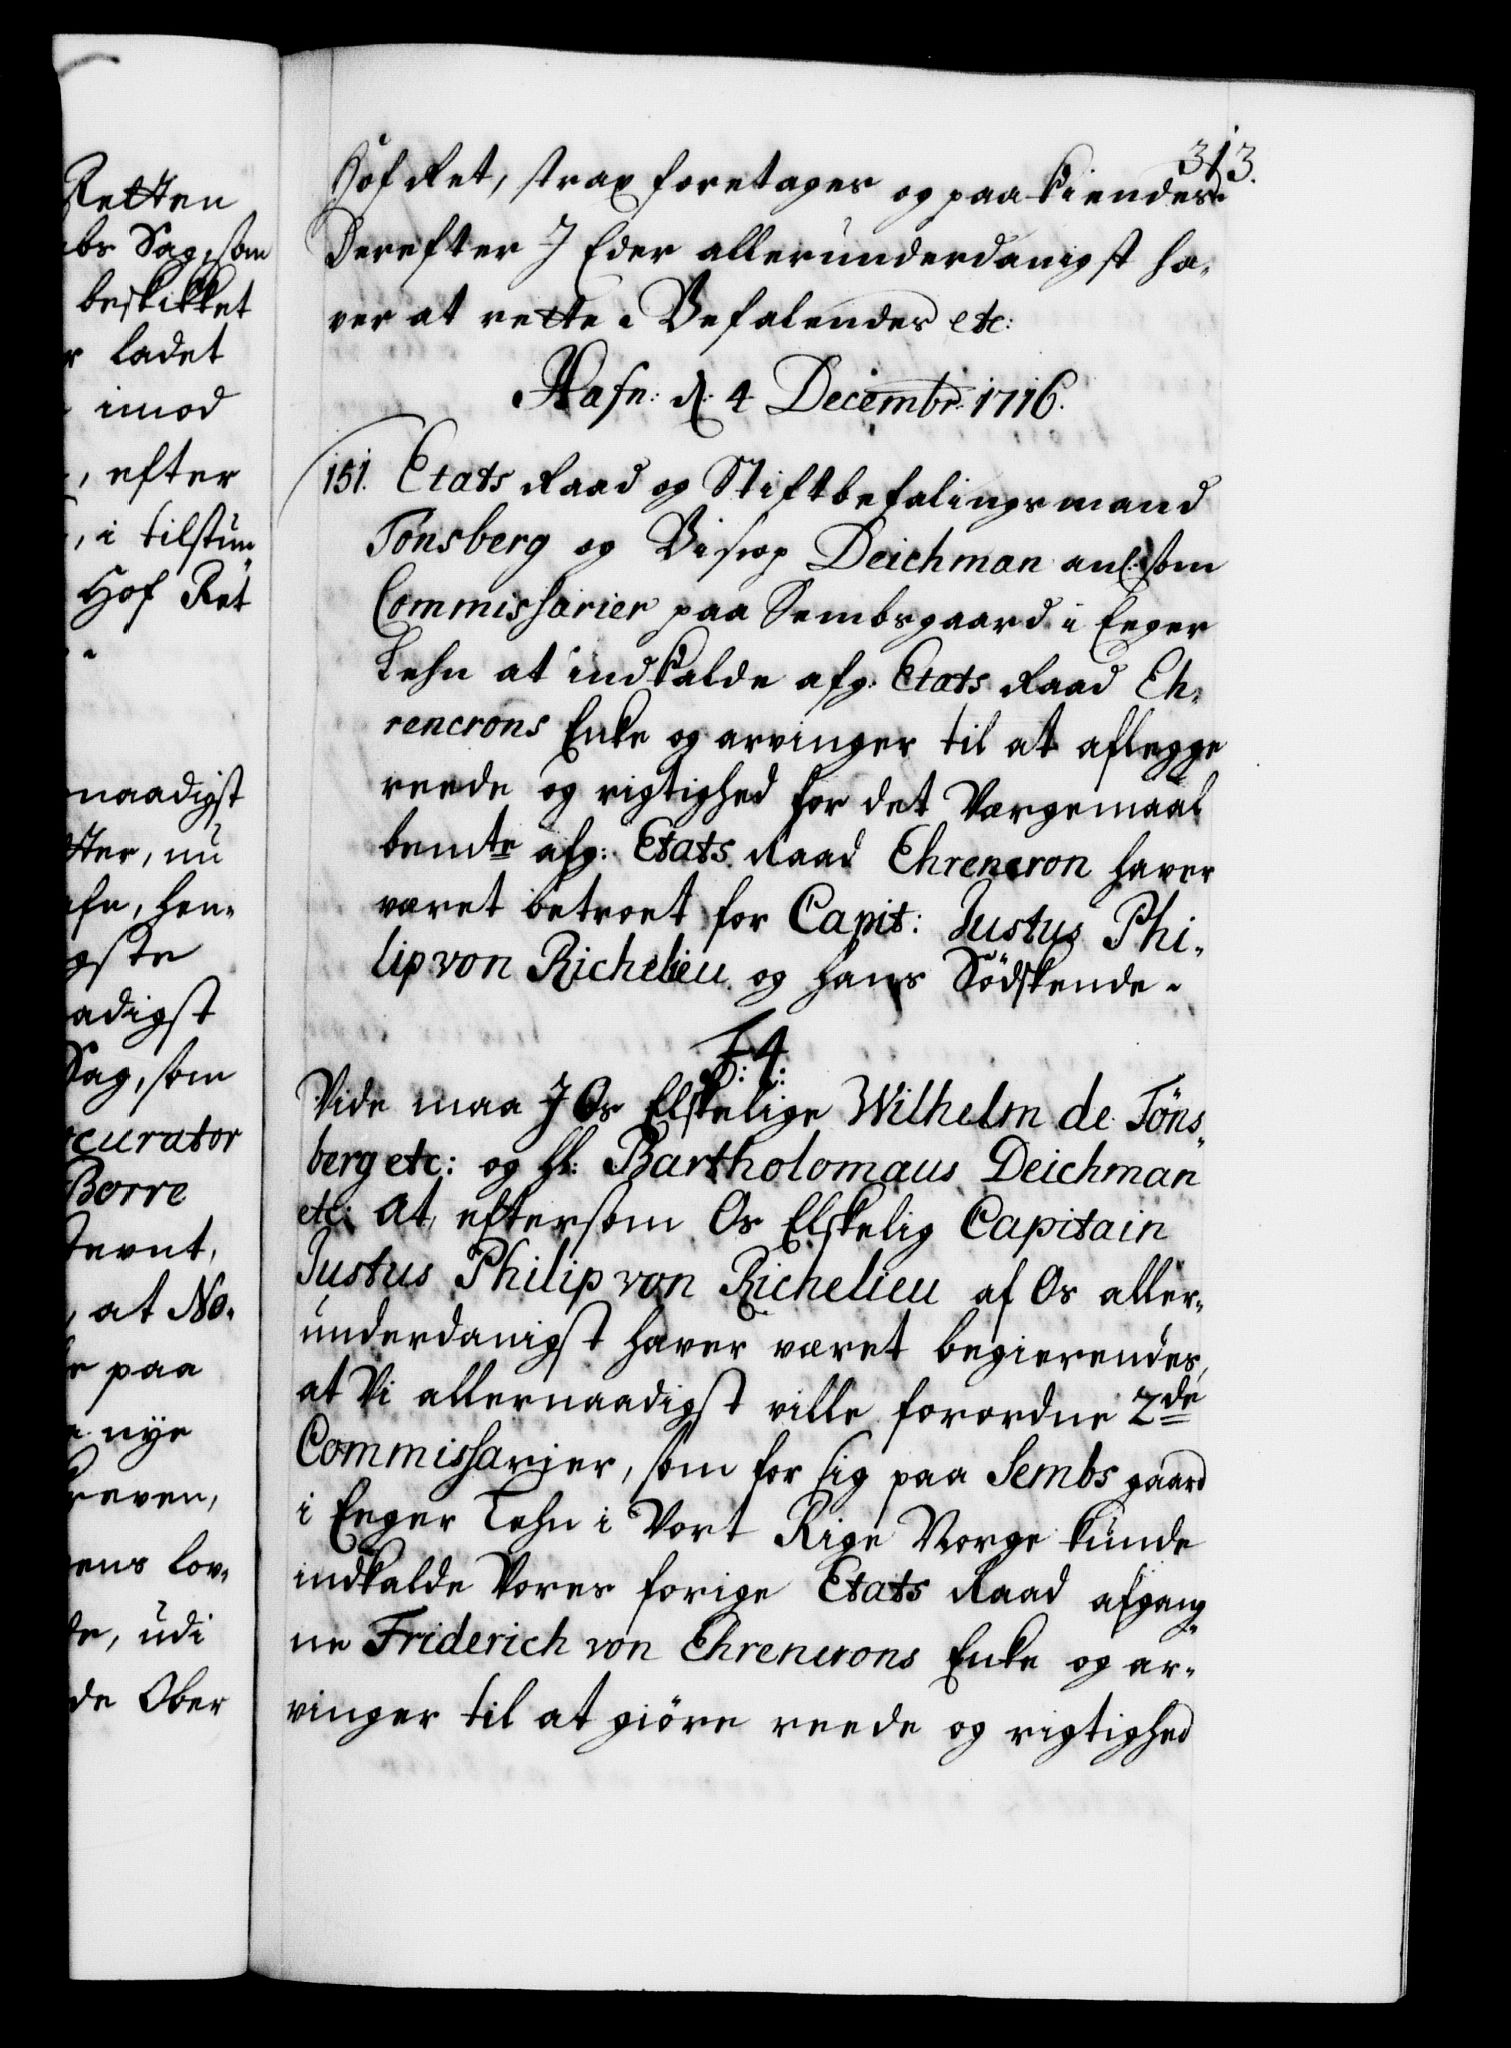 Retten
bs Sag, som
beskikket
r ladet
imod
, efter
, i tilstun¨
Hof Ret
naadigst
tter, nu
afn, hen„
gste
adigst
Sag, som
curator
Borre
tevnt,
, at No„
paa
nye
reven,
ens lov„
te, udi
de Ober
313.
Hof Ret, strax foretages og paakiendes.
Derefter I Eder allerunderdanigst ha„
ver at rette. Befalendes etc:
Hafn: d. 4 Decembr: 1716.
151. Etats Raad og Stiftbefalingsmand
Tönsberg og Biscop Deichman anl: som
Commissarier paa Sembsgaard i Eeger
Lehn at indkalde afg: Etats Raad Eh„
rencrons Enke og arvinger til at aflegge
reede og rigtighed for det Værgemaal
bemte afg: Etats Raad Ehrencron haver
været betroet for Capit: Justus Phi„
lip von Richelieu og hans Södskende.
F: 4:
Vide maa I Os Elskelige Wilhelm de Töns„
berg etc: og Hr: Bartholomæus Deichman
etc: at, eftersom Os Elskelig Capitain
Justus Philip von Richelieu af Os aller„
underdanigst haver været begierendes,
at Vi allernaadigst ville forordne 2de
Commissarier, som for sig paa Sembs gaard
i Eeger Lehn i Vort Rige Norge kunde
indkalde Vores forige Etats Raad afgang„
ne Friderich von Ehrencrons Enke og ar„
vinger til at giöre reede og rigtighed